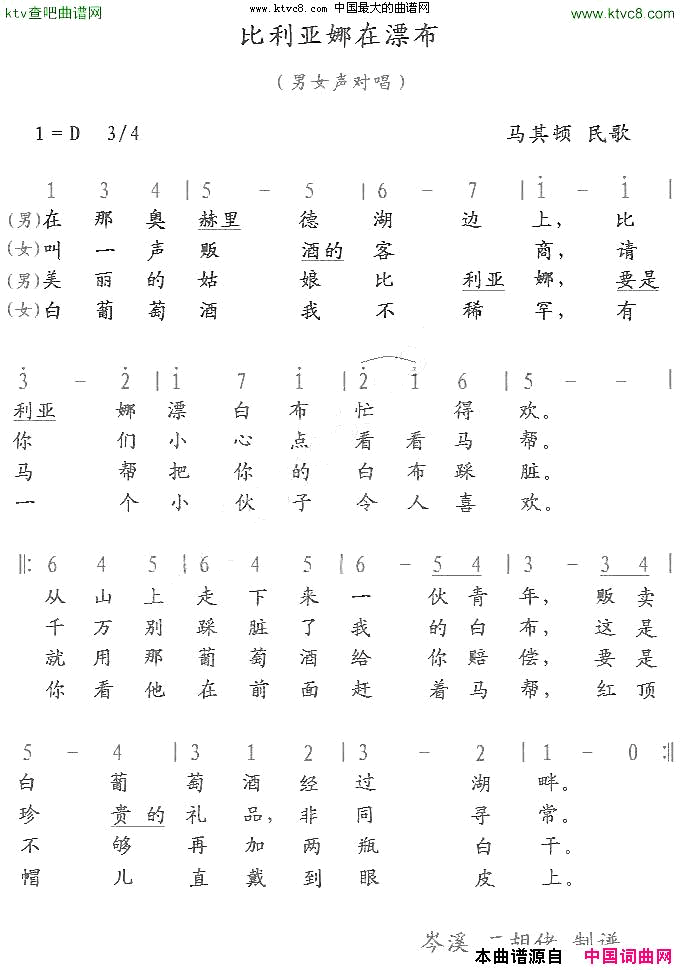 ktv查吧曲谱网 www.ktvc8.com 中国最大的曲谱网 www.ktvc8.com
比利亚娜在漂布
(男女声对唱)
1=D 3/4 马其顿 民歌
1 3 4 | 5 - 5 | 6 - 7 | i - i |
(男)在那奥赫里德湖边上,比
(女)叫一声贩酒的客商,请
(男)美丽的姑娘比利亚娜,要是
(女)白葡萄酒我不稀罕,有
3 - 2 | i 7 i | 2 i 6 | 5 - - |
利亚娜漂白布忙得欢。
你们小心点看看马帮。
马帮把你的白布踩脏。
一个小伙子令人喜欢。
‖: 6 4 5 | 6 4 5 | 6 - 5 4 | 3 - 3 4 |
从山上走下来一伙青年,贩卖
千万别踩脏了我的白布,这是
就用那葡萄酒给你赔偿,要是
你看他在前面赶着马帮,红顶
5 - 4 | 3 1 2 | 3 - 2 | 1 - 0 :‖
白葡萄酒经过湖畔。
珍贵的礼品,非同寻常。
不够再加两瓶白干。
帽儿直戴到眼皮上。
岑溪 二胡佬 制谱
本曲谱源自 中国词曲网